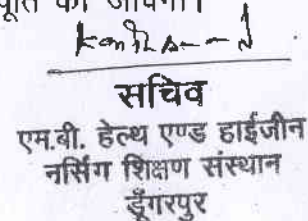 पूर्ति की जावेगी।
सचिव
एम.बी. हेल्थ एण्ड हाईजीन
नर्सिग शिक्षण संस्थान
डूँगरपुर